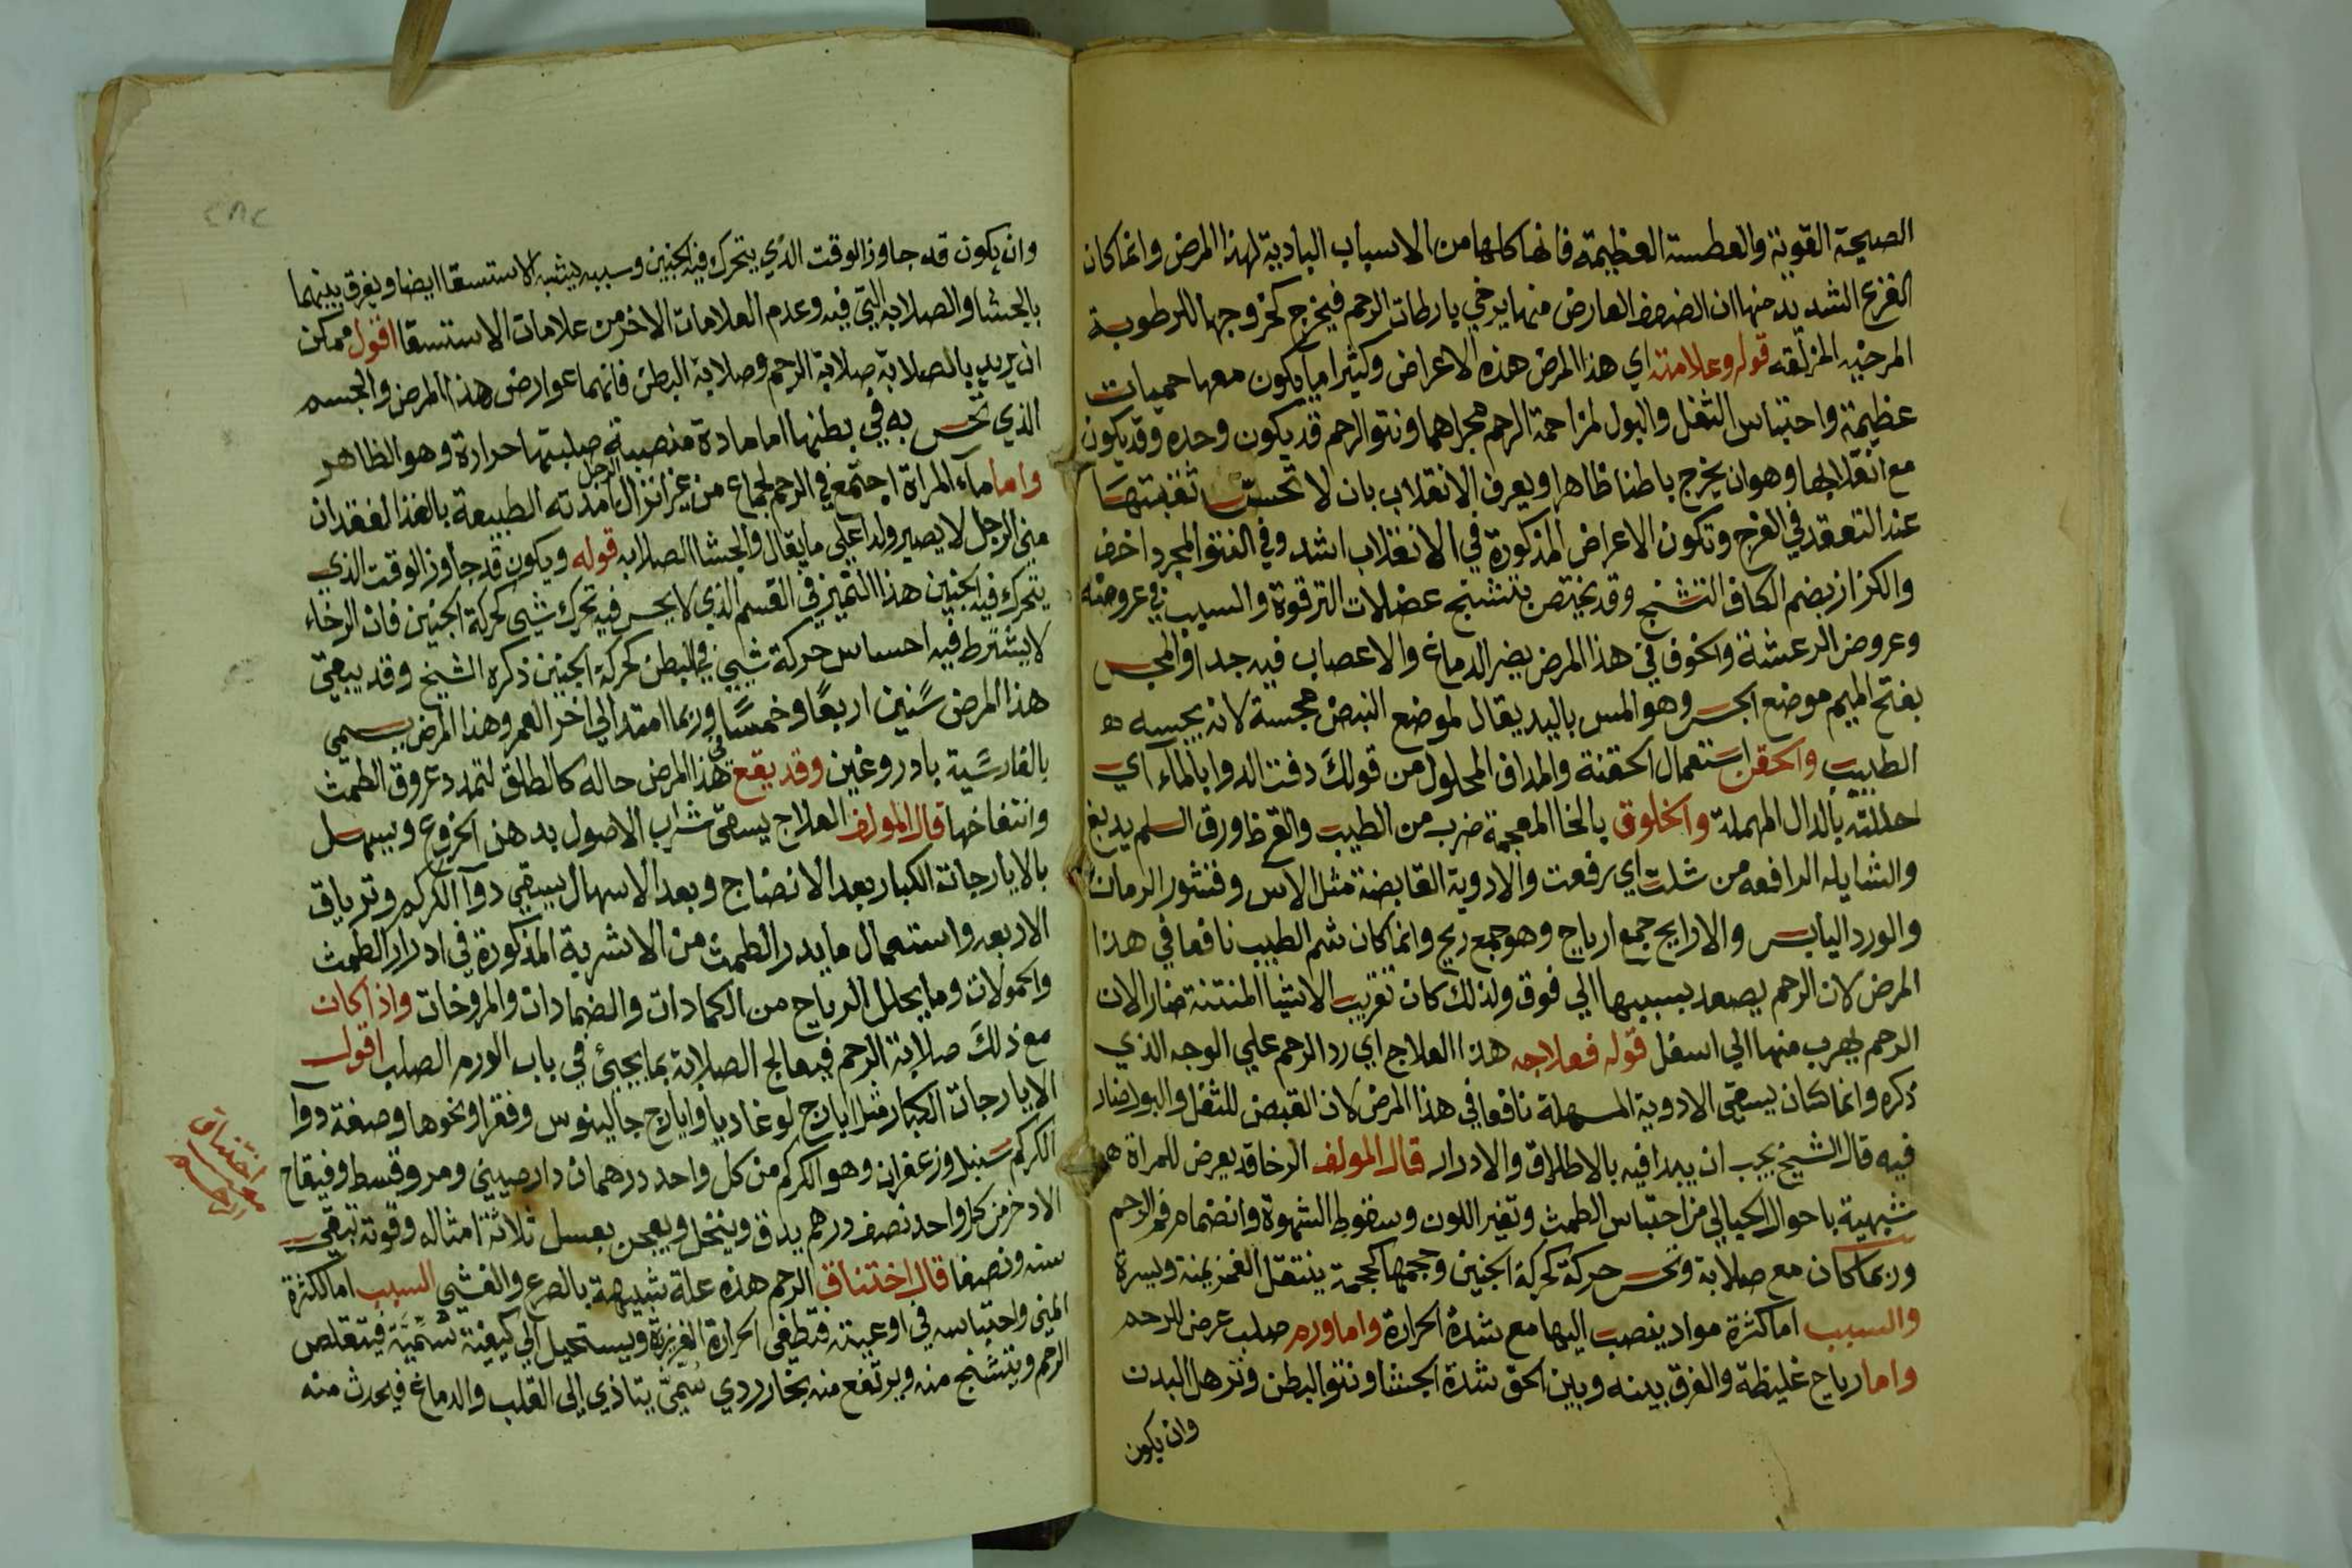 الصيحة القوية والعطسة العظيمة فانها كلها من الاسباب البادية لهذا المرض وانما كان
الفزع الشديد منها ان الضعف العارض منها يرخي رباطات الرحم فيخرج كخروجها للرطوبة
المرخيه المزلقه قوله وعلامته اي هذا المرض هذه الاعراض وكثيرا ما يكون معها حميات
عظيمة واحتباس الثفل والبول لمزاحمة الرحم مجراهما ونتو الرحم قد يكون وحده وقد يكون
مع انقلابها وهو ان يخرج باطنا ظاهرا ويعرف الانقلاب بان لا تحس ثقبتها
عند التفقد في الفرج وتكون الاعراض المذكورة في الانقلاب اشد وفي النتو المجرد اخف
والكزاز بضم الكاف التشنج وقد يختص بتشنج عضلات الترقوة والسبب في عروضه
وعروض الرعشة والخوف في هذا المرض يضر الدماغ والاعصاب فيه جدا والمجس
بفتح الميم موضع الجس وهو المس باليد يقال لموضع النبض مجسة لانه يجسه ه
الطبيب والحقن استعمال الحقنة والمداف المحلول من قولك دفت الدوا بالماء اي
حللته بالدال المهملة والخلوق بالخا المعجمة ضرب من الطيب والقرظ ورق السلم يدبغ
والشايله الرافعه من شلت اي رفعت والادوية القابضة مثل الاس وقشور الرمان
والورد اليابس والارايح جمع ارياح وهو جمع ريح وانما كان شم الطيب نافعا في هذا
المرض لان الرحم يصعد بسببها الي فوق ولذلك كان تقريب الاشيا المنتنة ضارا لان
الرحم يهرب منها الي اسفل قوله فعلاجه هذا العلاج اي رد الرحم علي الوجه الذي
ذكره وانما كان يسقي الادوية المسهلة نافعا في هذا المرض لان القبض للثفل والبول ضار
فيه قال الشيخ يجب ان يبدا فيه بالاطلاق والادرار قال المولف الرخا قد يعرض للمراة ه
شبيهة باحوال الحبالي من احتباس الطمث وتغير اللون وسقوط الشهوة وانضمام فم الرحم
وربما كان مع صلابة وتحس حركة كحركة الجنين وحجمها كحجمه ينتقل الغمز يمنة ويسرة
والسبب اما كثرة مواد ينصب اليها مع شدة الحرارة واما ورم صلب عرض للرحم
واما رياح غليظة والفرق بينه وبين الحق شدة الجشا ونتو البطن وترهل البدن
وان يكون
وان يكون قد جاوز الوقت الذي يتحرك فيه الجنين وسببه يشبه الاستسقا ايضا ويفرق بينهما
بالجشا والصلابه التي فيه وعدم العلامات الاخر من علامات الاستسقا اقول ممكن
ان يريد بالصلابة صلابة الرحم وصلابة البطن فانهما عوارض هذا المرض والجسم
الذي تحس به في بطنها اما مادة منصبة صلبتها حرارة وهو الظاهر
واما مآء المراة اجتمع في الرحم لجماع من غير انزال الرجل امدته الطبيعة بالغذا لفقدان
مني الرجل لا يصير ولدا علي ما يقال والجشا الصلابه قوله ويكون قد جاوز الوقت الذي
يتحرك فيه الجنين هذا التميز في القسم الذي لا يحس فيه تحرك شيى كحركة الجنين فان الرخاء
لا يشترط فيه احساس حركة شيى في البطن كحركة الجنين ذكره الشيخ وقد يبقي
هذا المرض سنين اربعًا وخمسًا وربما امتد الي اخر العمر وهذا المرض يسمي
بالفارسية بادروغين وقد يقع في هذا المرض حاله كالطلق لتمدد عروق الطمث
وانتفاخها قال المولف العلاج يسقي شراب الاصول بدهن الخروع ويسهل
بالايارجات الكبار بعد الانضاج وبعد الاسهال يسقي دوآ الكركم وترياق
الاربعه واستعمال ما يدر الطمث من الاشربة المذكورة في ادرار الطمث
والحمولات وما يحلل الرياح من الكمادات والضمادات والمروخات واذا كان
مع ذلك صلابة الرحم فيعالج الصلابة بما يجيئ في باب الورم الصلب اقول
الايارجات الكبار مثل ايارج لوغاديا وايارج جالينوس وفقرا ونحوها وصفة دوآ
الكركم سنبل وزعفران وهو الكركم من كل واحد درهمان دارصيني ومر وقسط وفقاح
الاذخر من كل واحد نصف درهم يدق وينخل ويعجن بعسل ثلاثة امثاله وقوته تبقي
سنه ونصفا قال اختناق الرحم هذه علة شبيهة بالصرع والغشي السبب اما لكثرة
المني واحتباسه في اوعيته فتطفي الحرارة الغريزة ويستحيل الي كيفية سُمّيّة فيتقلص
الرحم ويتشنج منه ويرتفع منه بخار ردي سُمّيّ يتاذي الي القلب والدماغ فيحدث منه
اختناق
الرحم